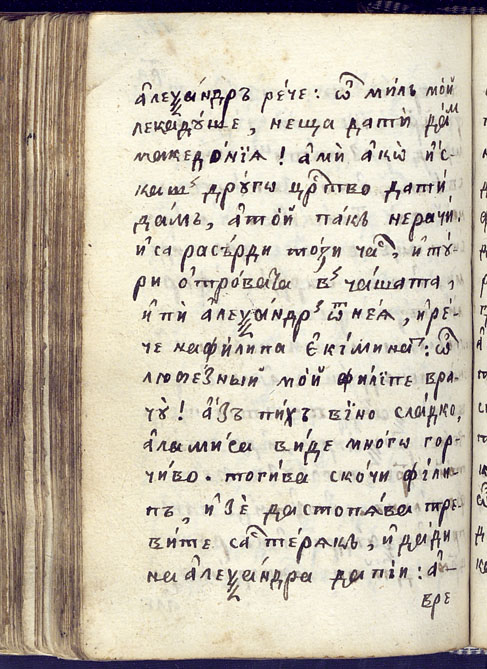 а҆леѯа́ндръ рече: ѽ милъ мой
лекадꙋше, неща дати да́м
македо́нїꙗ! ами ако̀ и҆́с-
каш дрꙋго црⷭ҇тво дати
дамь, а҆ той пакъ нерачи.
и҆са расърди този часⷭ҇, и҆тꙋ-
ри ѻ҆трова́та въ ча́шата,
и҆пѝ а҆леѯа́ндръ ѿ неѧ, и҆ре́-
че на фили́па є҆кимина: ѽ
любе́зный мо́й фили́пе вра-
чꙋ̀! а҆́зъ пи́хъ вїно сла́дко,
ала миса виде мно́гѡ гор-
чи́во. тоги́ва ско́чи фили-
пъ, и҆зѐ да стопѧ́ва тре-
ви́те са те́рѧкъ, и҆ да́ди
на а҆леѯа́ндра да пїи: а҆-
вре